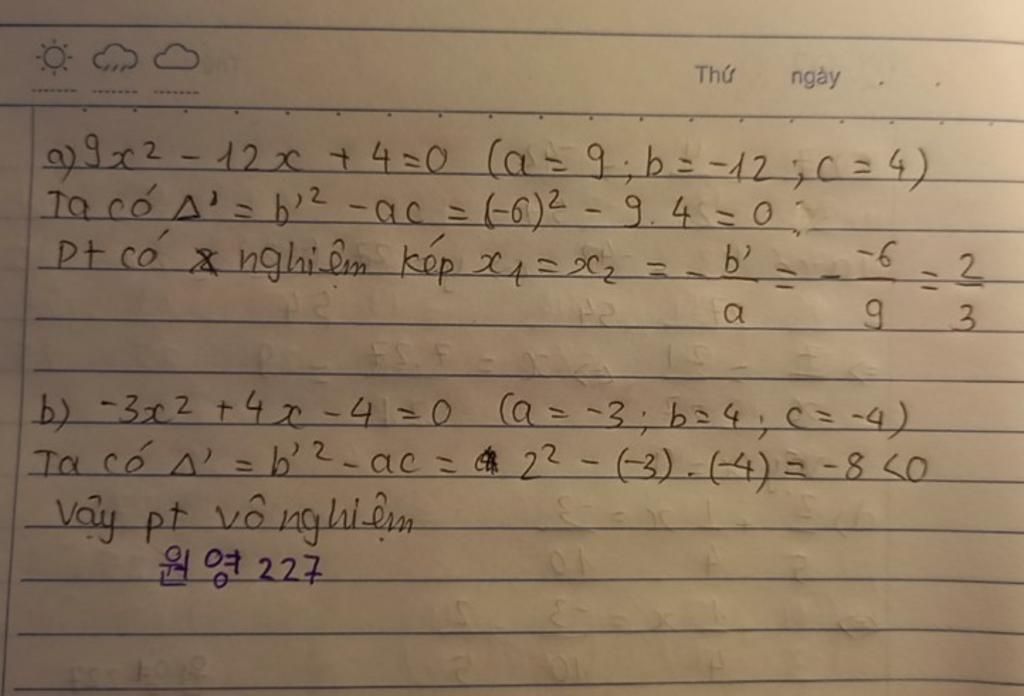 Thứ ngày
a) 9x² - 12x + 4 = 0 (a = 9 ; b = -12 ; c = 4)
Ta có Δ' = b'² - ac = (-6)² - 9 . 4 = 0
Pt có nghiệm kép x₁ = x₂ = - b'/a = - -6/9 = 2/3
b) -3x² + 4x - 4 = 0 (a = -3 ; b = 4 ; c = -4)
Ta có Δ' = b'² - ac = 2² - (-3) . (-4) = -8 < 0
Vậy pt vô nghiệm
원영 227